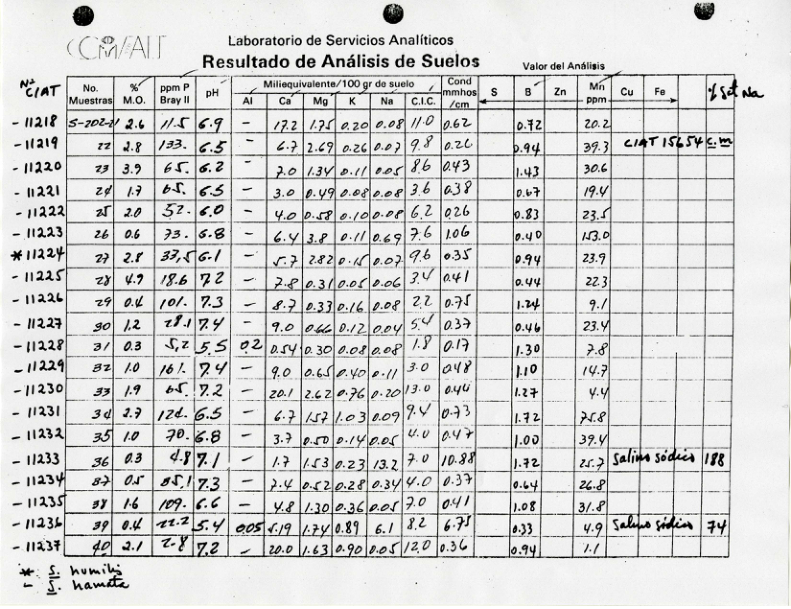 CIAT
Laboratorio de Servicios Analíticos
Resultado de Análisis de Suelos
Valor del Análisis
Nº CIAT No. Muestras % M.O. ppm P Bray II pH Miliequivalente/100 gr de suelo Al Ca Mg K Na C.I.C. Cond mmhos /cm S B Zn Mn ppm Cu Fe % Sat Na
- 11218 S-202-21 2.6 11.5 6.9 - 17.2 1.75 0.20 0.08 11.0 0.62 0.72 20.2
- 11219 22 2.8 133. 6.5 - 6.7 2.69 0.26 0.07 9.8 0.26 0.94 39.3 CIAT 15654 c.m
- 11220 23 3.9 65. 6.2 - 7.0 1.34 0.11 0.05 8.6 0.43 1.43 30.6
- 11221 24 1.7 65. 6.5 - 3.0 0.49 0.08 0.08 3.6 0.38 0.67 19.4
- 11222 25 2.0 52. 6.0 - 4.0 0.58 0.10 0.08 6.2 0.26 0.83 23.5
- 11223 26 0.6 73. 6.8 - 6.4 3.8 0.11 0.69 7.6 1.06 0.40 153.0
* 11224 27 2.8 33,5 6.1 - 5.7 2.82 0.15 0.07 9.6 0.35 0.94 23.9
- 11225 28 4.9 18.6 7.2 - 7.8 0.31 0.05 0.06 3.4 0.41 0.44 22.3
- 11226 29 0.4 101. 7.3 - 8.7 0.33 0.16 0.08 2.2 0.75 1.24 9.1
- 11227 30 1.2 28.1 7.4 - 9.0 0.66 0.12 0.04 5.4 0.37 0.46 23.4
- 11228 31 0.3 5,2 5.5 0.2 0.54 0.30 0.08 0.08 1.8 0.17 1.30 7.8
- 11229 32 1.0 161. 7.4 - 9.0 0.65 0.40 0.11 3.0 0.48 1.10 14.7
- 11230 33 1.9 65. 7.2 - 20.1 2.62 0.76 0.20 13.0 0.44 1.27 4.4
- 11231 34 2.7 124. 6.5 - 6.7 1.57 1.03 0.09 9.4 0.73 1.72 75.8
- 11232 35 1.0 70. 6.8 - 3.7 0.50 0.14 0.05 4.0 0.47 1.00 39.4
- 11233 36 0.3 4.8 7.1 - 1.7 1.53 0.23 13.2 7.0 10.88 1.72 25.7 Salino sódico 188
- 11234 37 0.5 85,1 7.3 - 7.4 0.52 0.28 0.34 4.0 0.37 0.64 26.8
- 11235 38 1.6 109. 6.6 - 4.8 1.30 0.36 0.05 7.0 0.41 1.08 31.8
- 11236 39 0.4 22.2 5.4 0.05 5.19 1.74 0.89 6.1 8.2 6.75 0.33 4.9 Salino sódico 74
- 11237 40 2.1 2.8 7.2 - 20.0 1.63 0.90 0.05 12.0 0.36 0.94 1.1
* S. humilis
- S. hamata